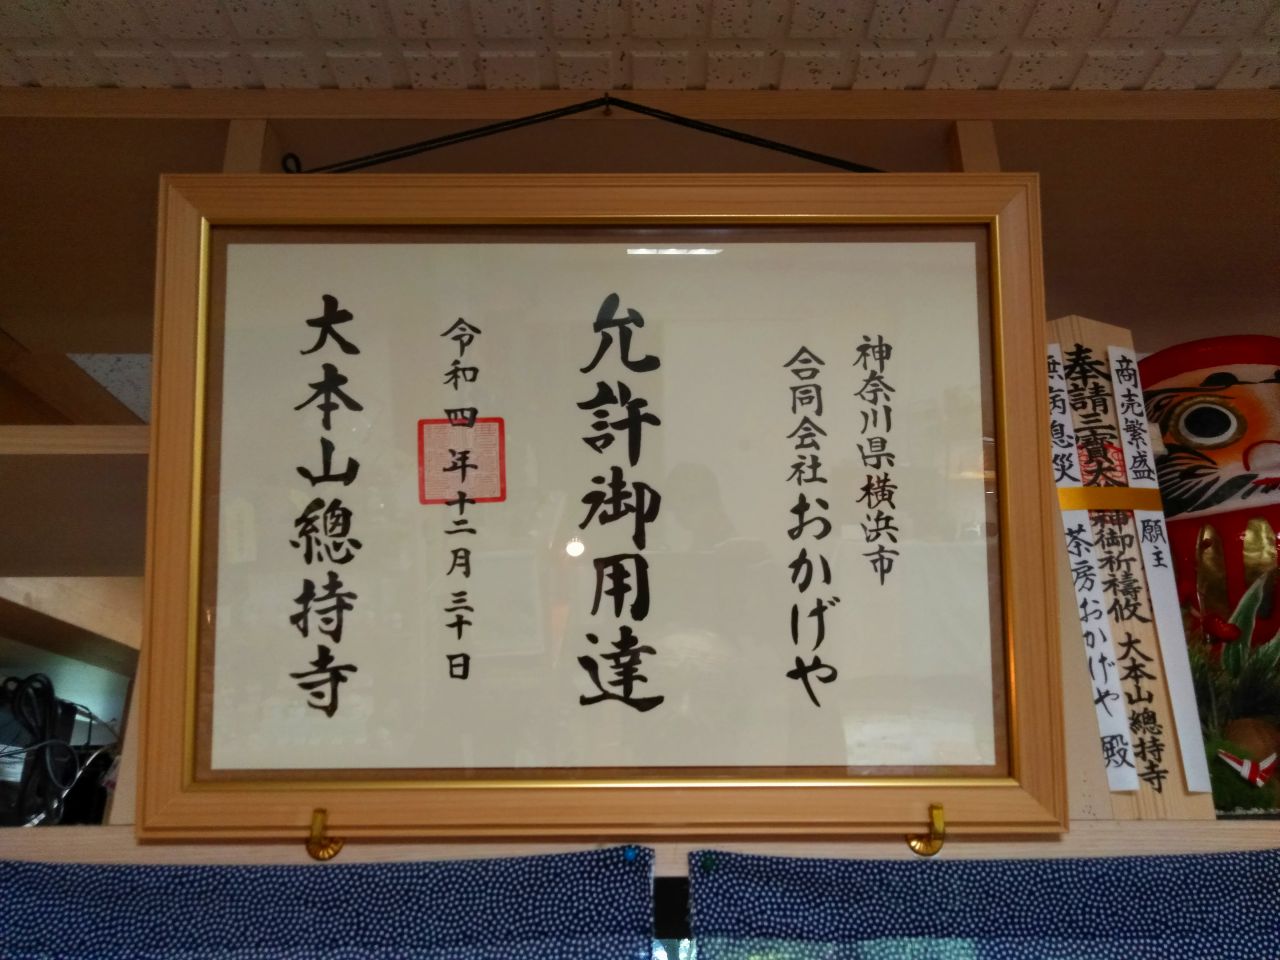 神奈川県横浜市
合同会社おかげや
允許御用達
令和四年十二月三十日
大本山總持寺
商売繁盛
願主
奉請三寳大
神御祈禱攸 大本山總持寺
無病息災
茶房おかげや 殿